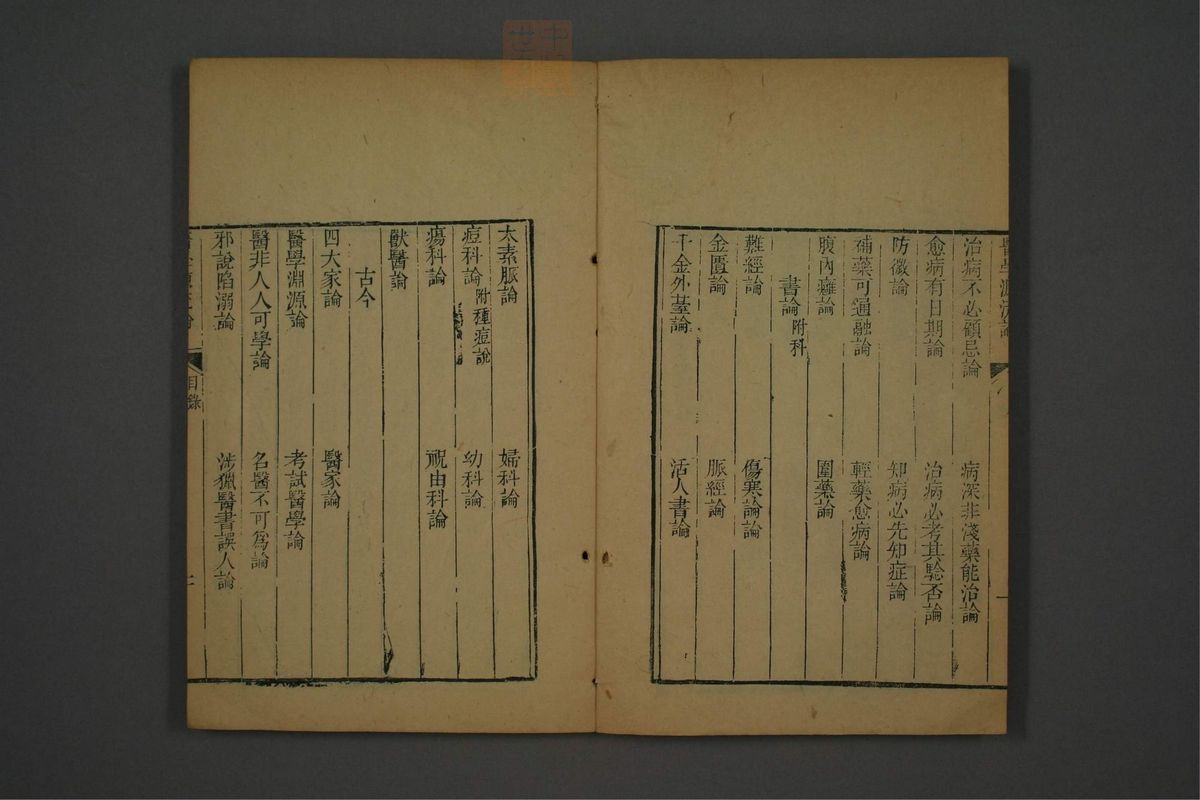 醫學源流論
治病不必顧忌論 病深非淺藥能治論
愈病有日期論 治病必考其驗否論
防微論 知病必先知症論
補藥可通融論 輕藥愈病論
腹內癰論 圍藥論
書論附科
難經論 傷寒論論
金匱論 脈經論
千金外臺論 活人書論
太素脈論 婦科論
痘科論附種痘說 幼科論
瘍科論 祝由科論
獸醫論
古今
四大家論 醫家論
醫學淵源論 考試醫學論
醫非人人可學論 名醫不可為論
邪說陷溺論 涉獵醫書誤人論
目錄